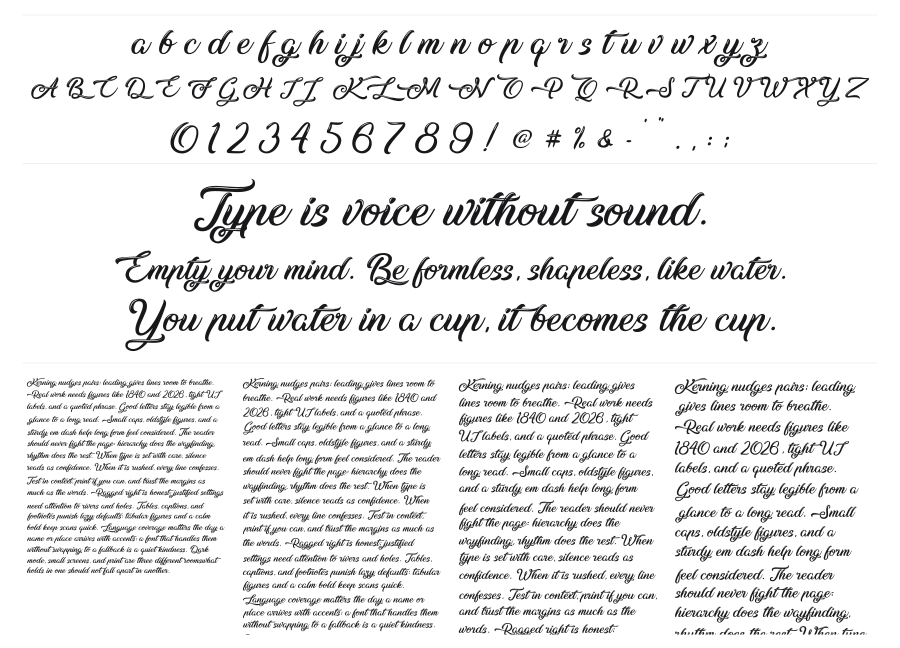 a b c d e f g h i j k l m n o p q r s t u v w x y z
A B C D E F G H I J K L M N O P Q R S T U V W X Y Z
0 1 2 3 4 5 6 7 8 9 ! @ # % & - ' " . , : ;
Type is voice without sound.
Empty your mind. Be formless, shapeless, like water.
You put water in a cup, it becomes the cup.
Kerning nudges pairs: leading gives lines room to breathe.
Real work needs figures like 1840 and 2026, tight UI
labels, and a quoted phrase. Good letters stay legible from a
glance to a long read. Small caps, oldstyle figures, and a
sturdy em dash help long form feel considered. The reader
should never fight the page: hierarchy does the wayfinding,
rhythm does the rest. When type is set with care, silence
reads as confidence. When it is rushed, every line confesses.
Test in context: print if you can, and trust the margins as
much as the words. Ragged right is honest; justified settings
need attention to rivers and holes. Tables, captions, and
footnotes punish lazy defaults: tabular figures and a calm
bold keep scans quick. Language coverage matters the day a
name or place arrives with accents: a font that handles them
without swapping to a fallback is a quiet kindness. Dark
mode, small screens, and print are three different rooms: what
holds in one should not fall apart in another.
Kerning nudges pairs: leading gives lines room to
breathe. Real work needs figures like 1840 and
2026, tight UI labels, and a quoted phrase.
Good letters stay legible from a glance to a long
read. Small caps, oldstyle figures, and a sturdy
em dash help long form feel considered. The reader
should never fight the page: hierarchy does the
wayfinding, rhythm does the rest. When type is
set with care, silence reads as confidence. When
it is rushed, every line confesses. Test in context:
print if you can, and trust the margins as much as
the words. Ragged right is honest; justified
settings need attention to rivers and holes. Tables,
captions, and footnotes punish lazy defaults: tabular
figures and a calm bold keep scans quick.
Language coverage matters the day a name or
place arrives with accents: a font that handles them
without swapping to a fallback is a quiet kindness.
Kerning nudges pairs: leading gives
lines room to breathe. Real work needs
figures like 1840 and 2026, tight
UI labels, and a quoted phrase. Good
letters stay legible from a glance to a
long read. Small caps, oldstyle figures,
and a sturdy em dash help long form
feel considered. The reader should never
fight the page: hierarchy does the
wayfinding, rhythm does the rest. When
type is set with care, silence reads as
confidence. When it is rushed, every line
confesses. Test in context: print if you can,
and trust the margins as much as the
words. Ragged right is honest;
Kerning nudges pairs: leading
gives lines room to breathe.
Real work needs figures like
1840 and 2026, tight UI
labels, and a quoted phrase.
Good letters stay legible from a
glance to a long read. Small
caps, oldstyle figures, and a
sturdy em dash help long form
feel considered. The reader
should never fight the page:
hierarchy does the wayfinding,
rhythm does the rest. When type